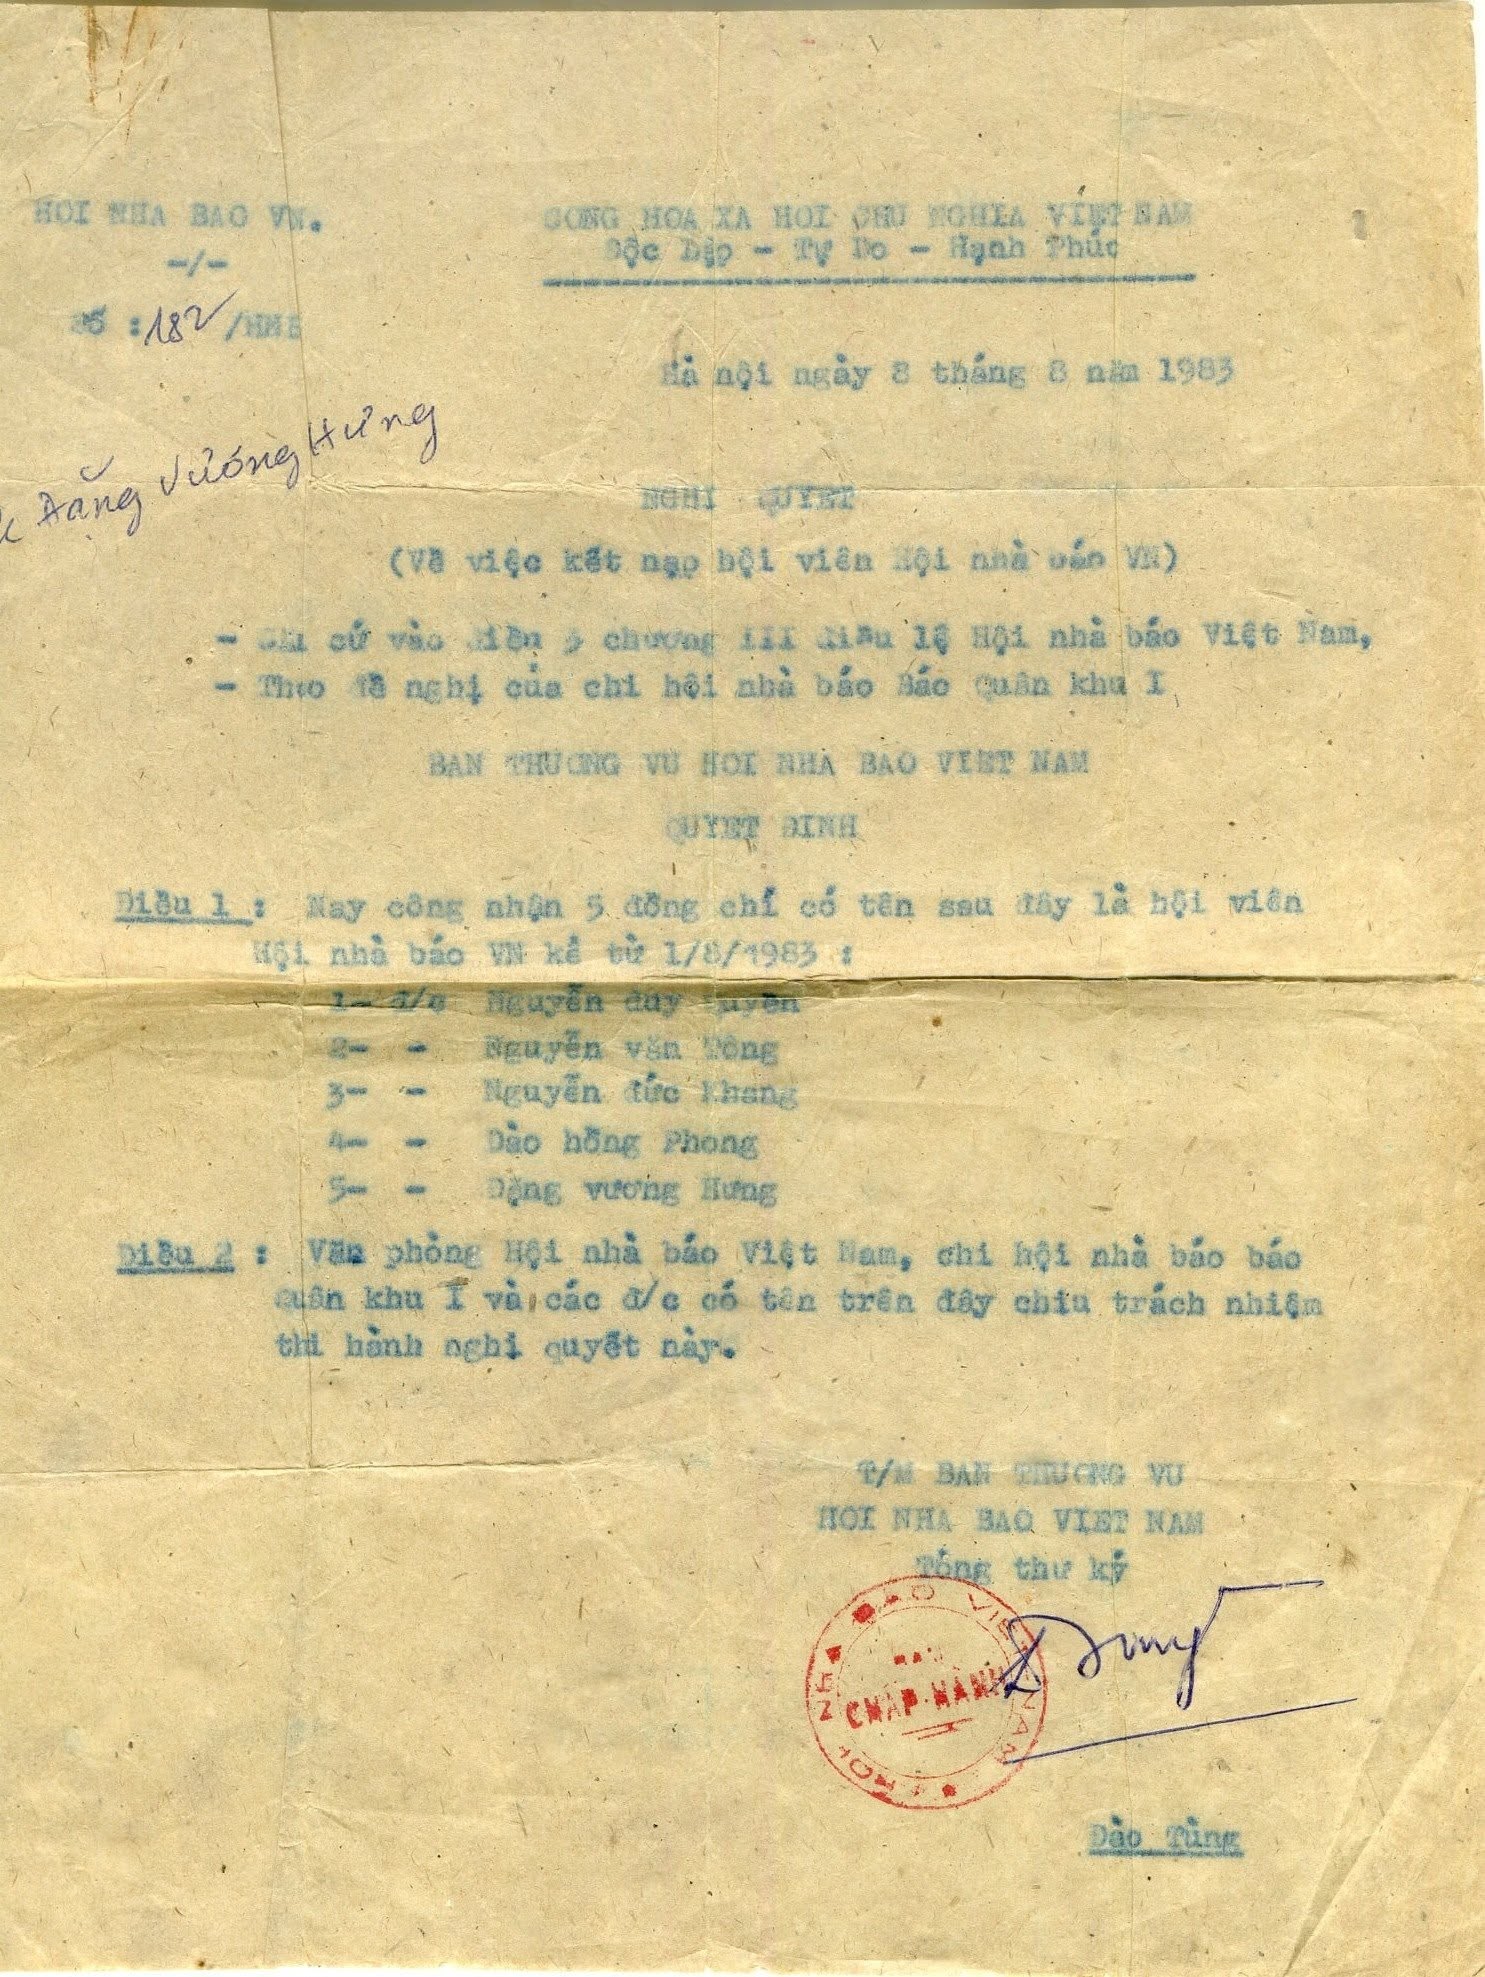 HOI NHA BAO VN.
-/-
Số : 182 /HNB
CONG HOA XA HOI CHU NGHIA VIET NAM
Độc Lập - Tự Do - Hạnh Phúc
Hà nội ngày 8 tháng 8 năm 1983
Đặng Vương Hưng
NGHI QUYET
(Về việc kết nạp hội viên Hội nhà báo VN)
- Căn cứ vào điều 3 chương III điều lệ Hội nhà báo Việt Nam,
- Theo đề nghị của chi hội nhà báo Báo Quân khu I
BAN THUONG VU HOI NHA BAO VIET NAM
QUYET ĐINH
Điều 1 : Nay công nhận 5 đồng chí có tên sau đây là hội viên
Hội nhà báo VN kể từ 1/8/1983 :
1- đ/c Nguyễn duy
2- - Nguyễn văn Tông
3- - Nguyễn đức Khang
4- - Đào hồng Phong
5- - Đặng vương Hưng
Điều 2 : Văn phòng Hội nhà báo Việt Nam, chi hội nhà báo báo
Quân khu I và các đ/c có tên trên đây chiu trách nhiệm
thi hành nghị quyết này.
T/M BAN THUONG VU
HOI NHA BAO VIET NAM
Tổng thư ký
HỘI NHÀ BÁO VIỆT NAM
BAN
CHẤP HÀNH
Đào Tùng